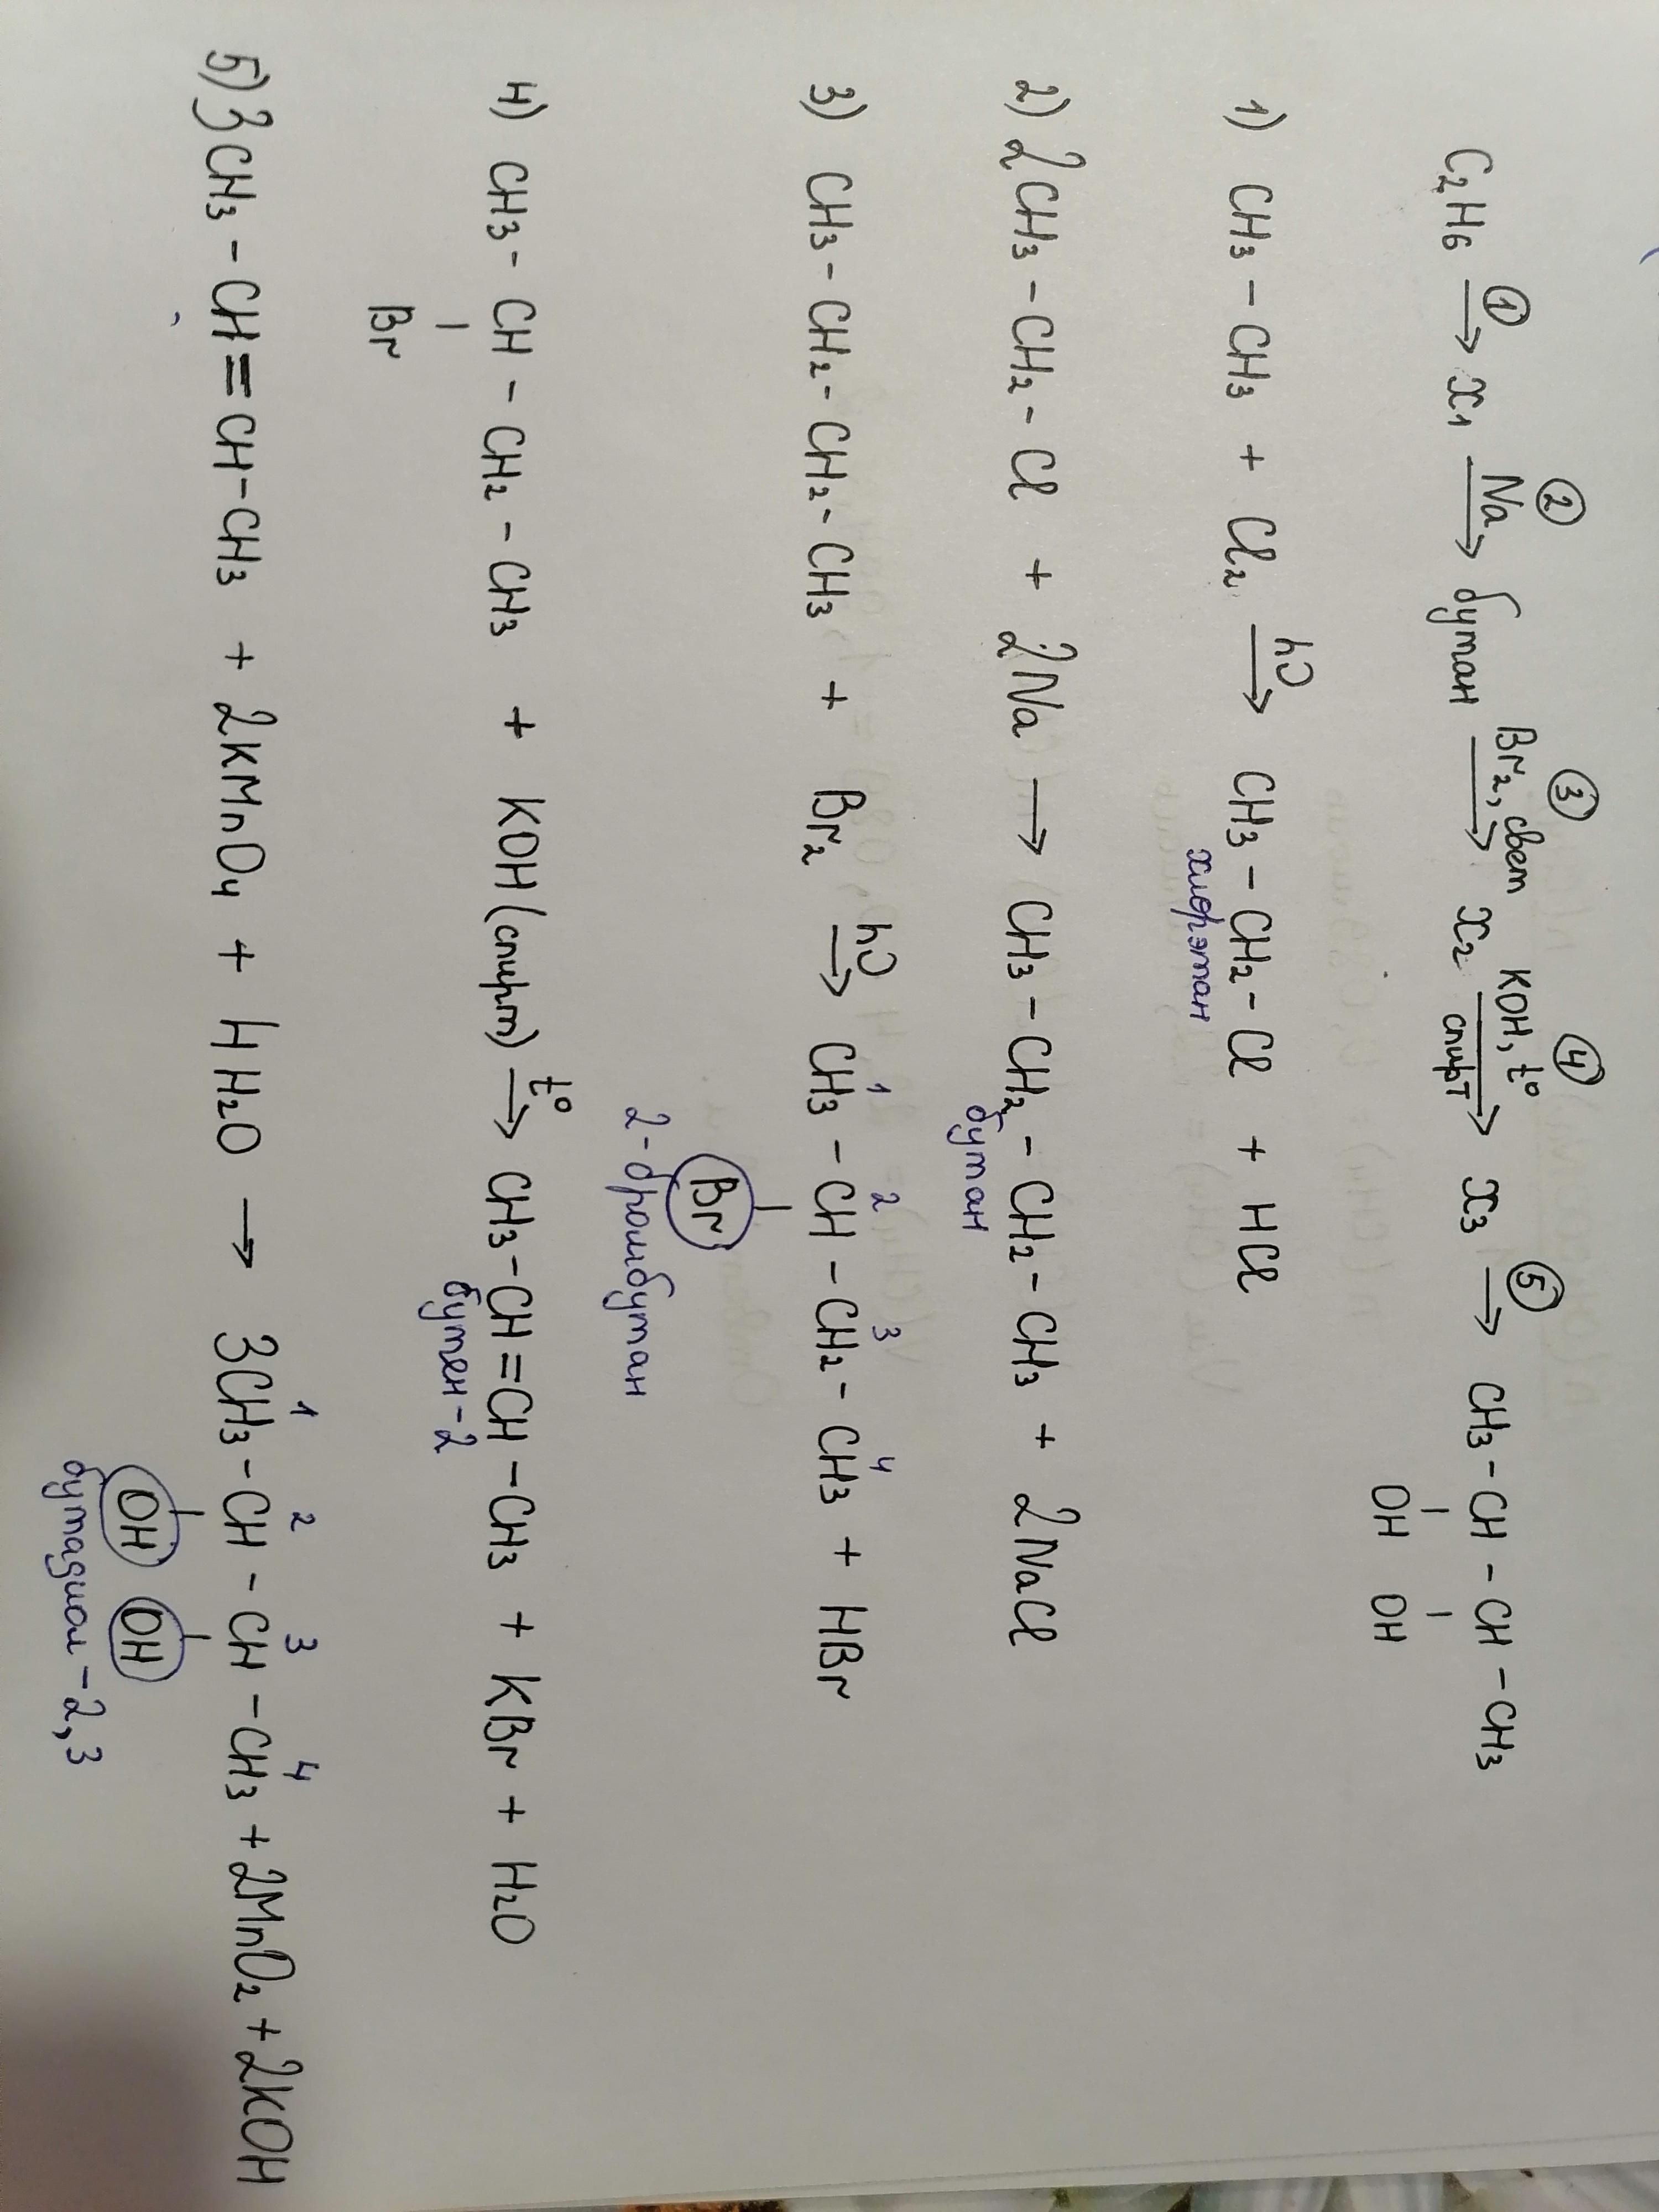 C₂H₆ —①→ X₁ —② Na→ бутан —③ Br₂, свет→ X₂ —④ KOH, t° спирт→ X₃ —⑤→ CH₃-CH-CH-CH₃
OH OH
1) CH₃-CH₃ + Cl₂ —hν→ CH₃-CH₂-Cl + HCl
хлорэтан
2) 2CH₃-CH₂-Cl + 2Na → CH₃-CH₂-CH₂-CH₃ + 2NaCl
бутан
3) CH₃-CH₂-CH₂-CH₃ + Br₂ —hν→ CH₃-CH-CH₂-CH₃ + HBr
1 2 3 4
Br
2-бромбутан
4) CH₃-CH-CH₂-CH₃ + KOH(спирт) —t°→ CH₃-CH=CH-CH₃ + KBr + H₂O
Br
бутен-2
5) 3CH₃-CH=CH-CH₃ + 2KMnO₄ + 4H₂O → 3CH₃-CH-CH-CH₃ + 2MnO₂ + 2KOH
1 2 3 4
OH OH
бутадиол-2,3